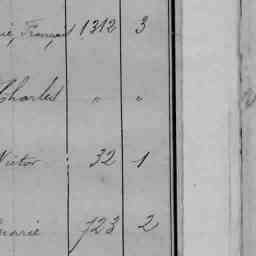 François 1312 3
Charles " "
Victor 32 1
Marie 723 2